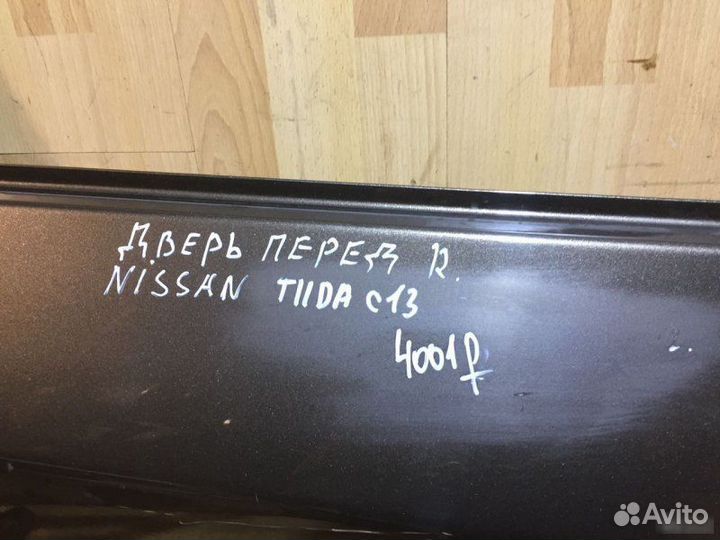 ДВЕРЬ ПЕРЕД R.
NISSAN TIIDA C13
4001р
Avito